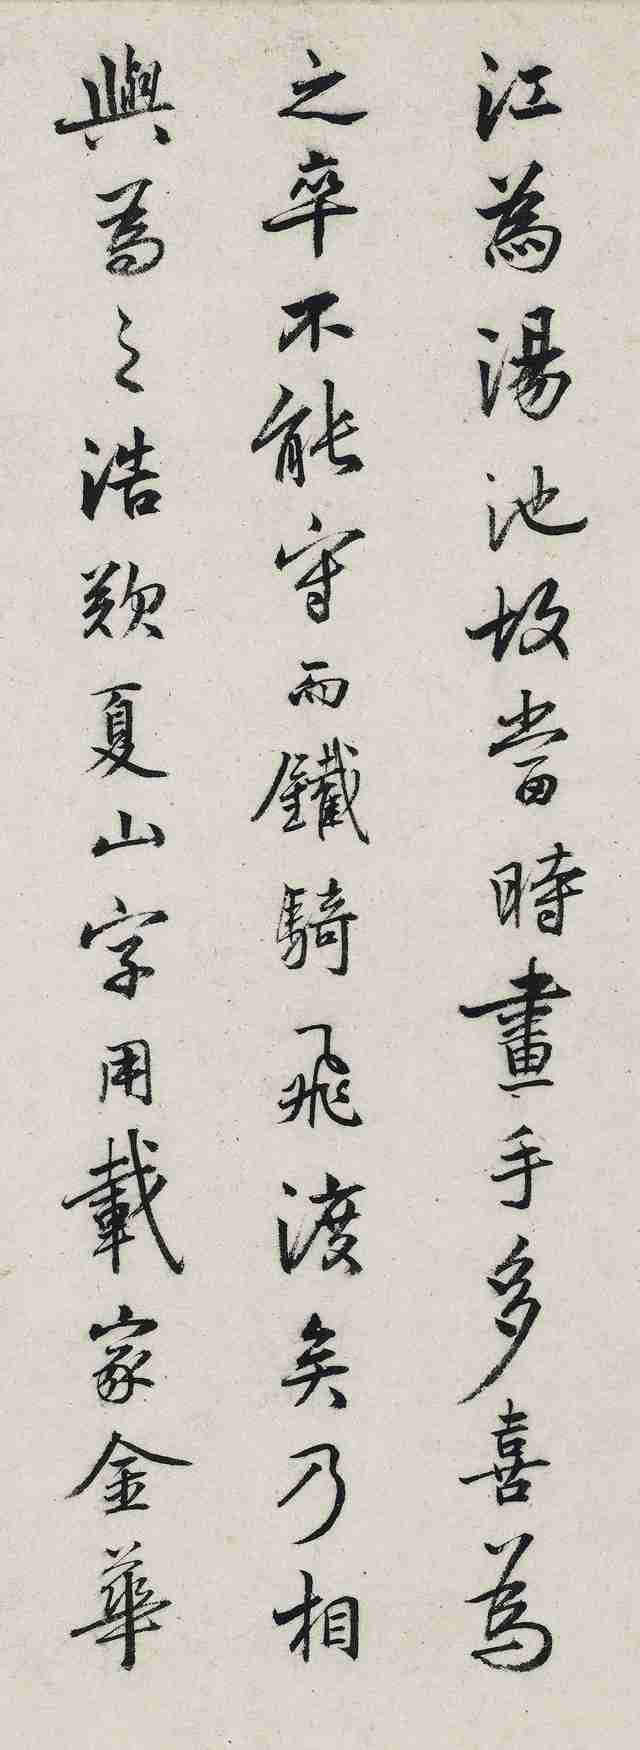 江為湯池故當時畫手多喜為
之卒不能守而鐵騎飛渡矣乃相
與為之浩歎夏山字用載家金華